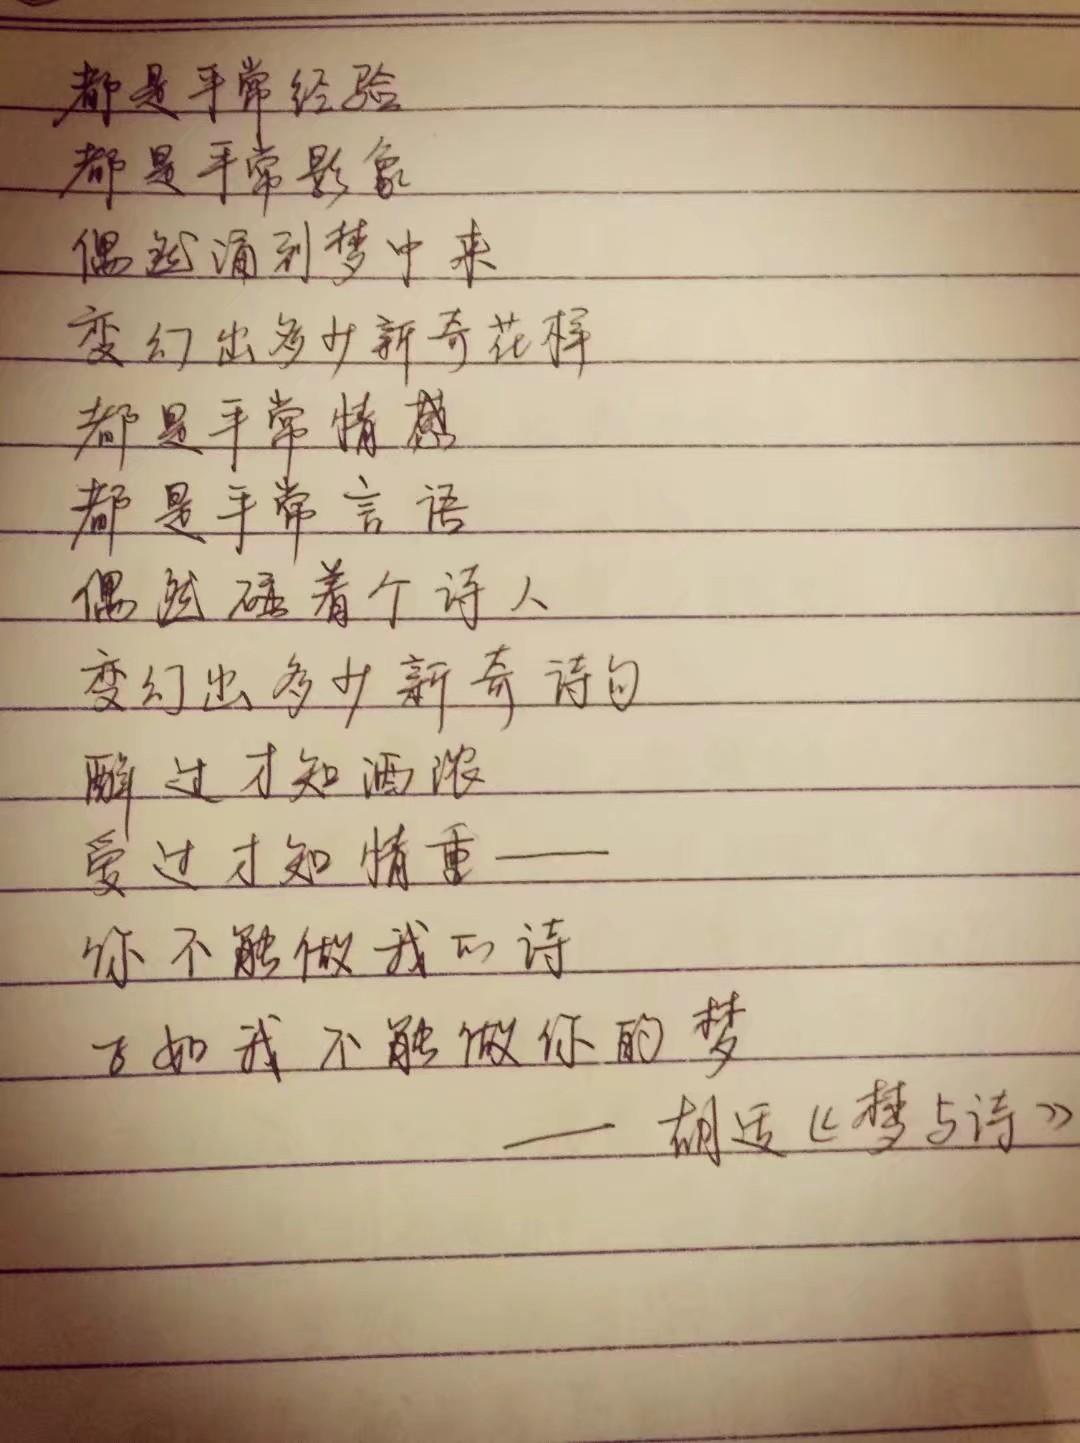 都是平常经验
都是平常影象
偶然涌到梦中来
变幻出多少新奇花样
都是平常情感
都是平常言语
偶然碰着个诗人
变幻出多少新奇诗句
醉过才知酒浓
爱过才知情重——
你不能做我的诗
正如我不能做你的梦
——胡适《梦与诗》